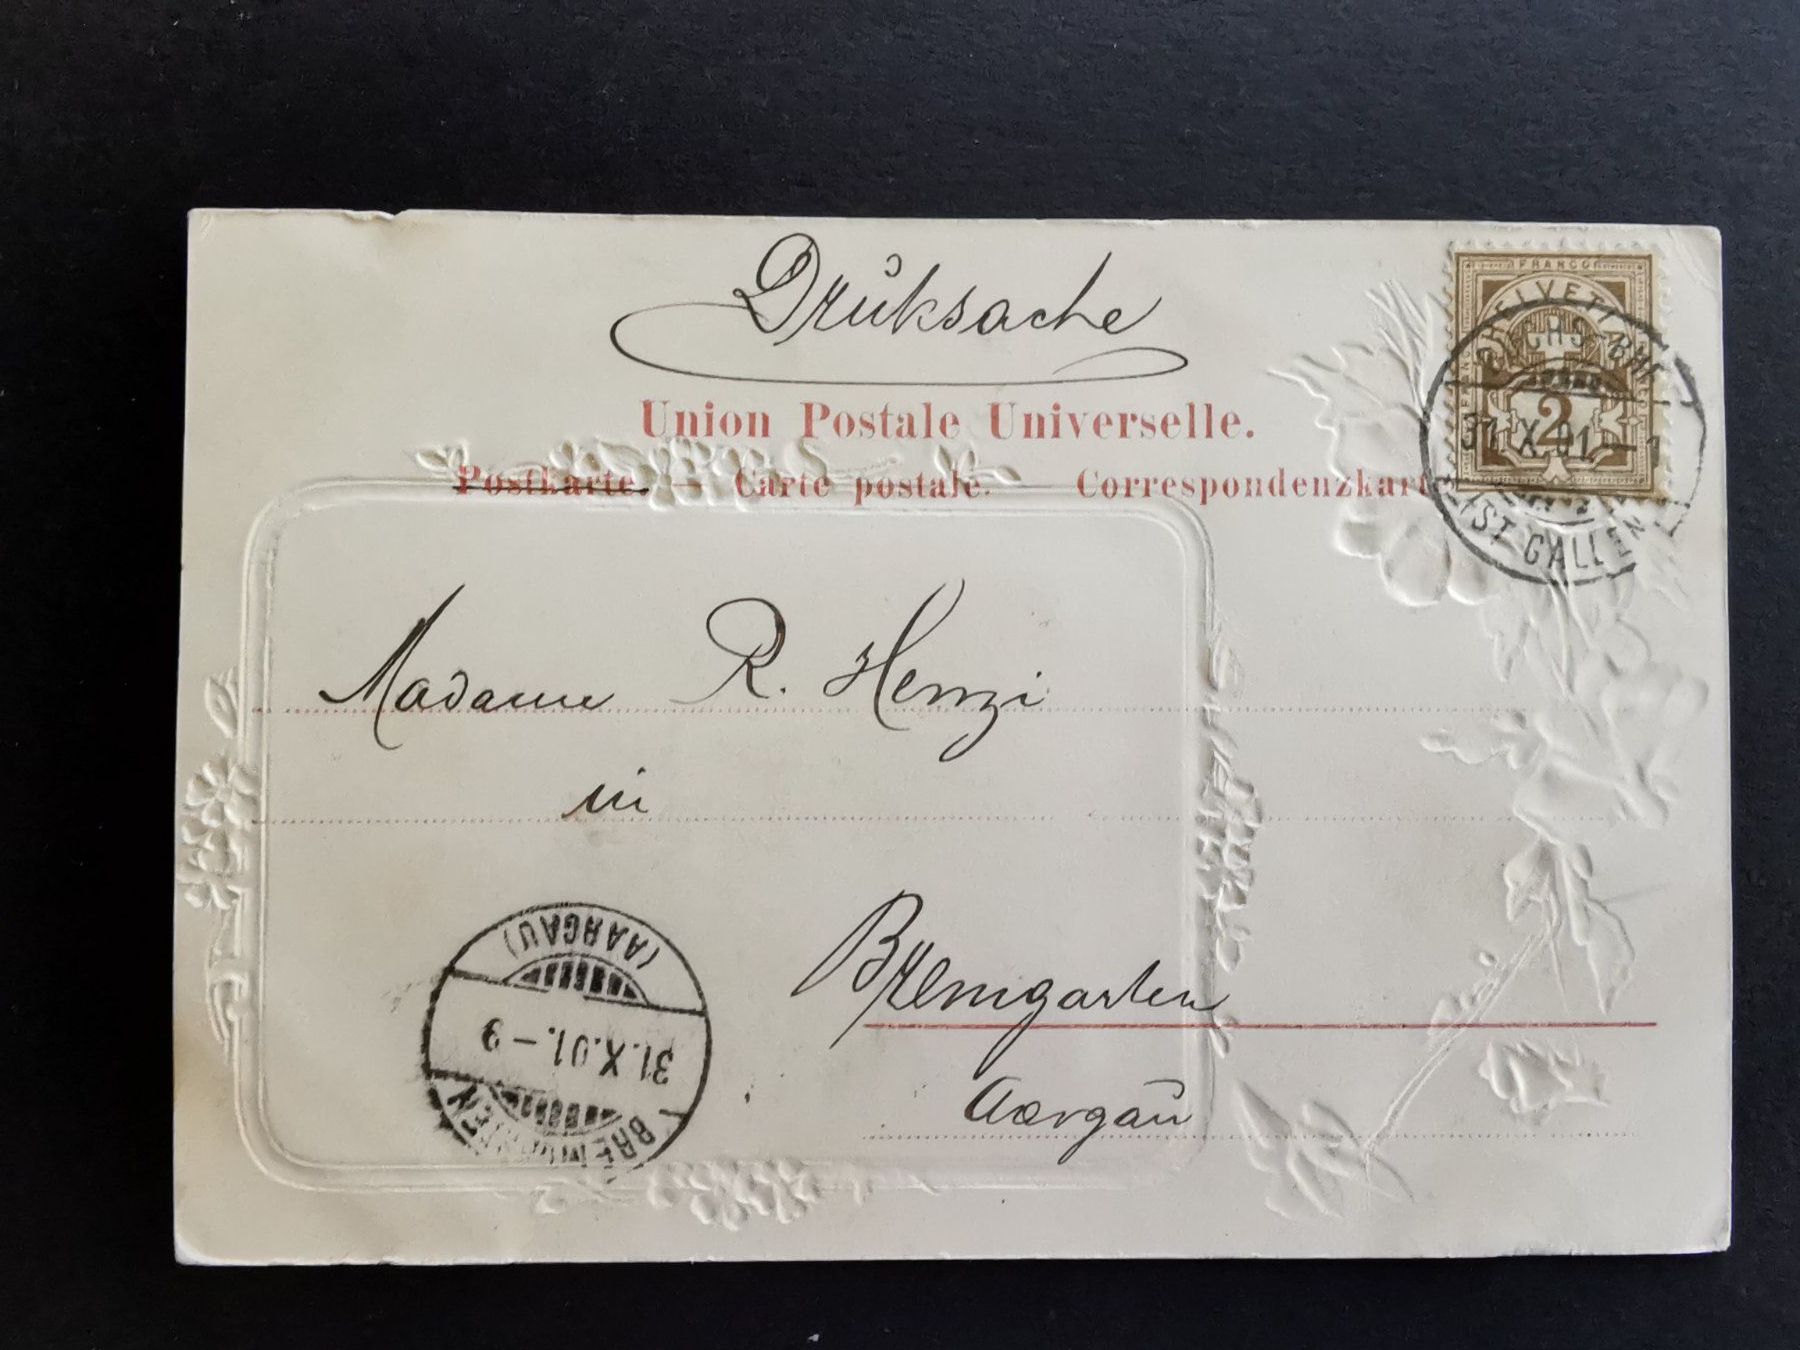 Drüksache
Union Postale Universelle.
Postkarte. — Carte postale. Correspondenzkarte
FRANCO
HELVETIA
2
31.X.01.
ST. GALLEN
Madame R. Henzi
in
Bremgarten
Aargaü
BREMGARTEN
31.X.01.-9
(AARGAU)